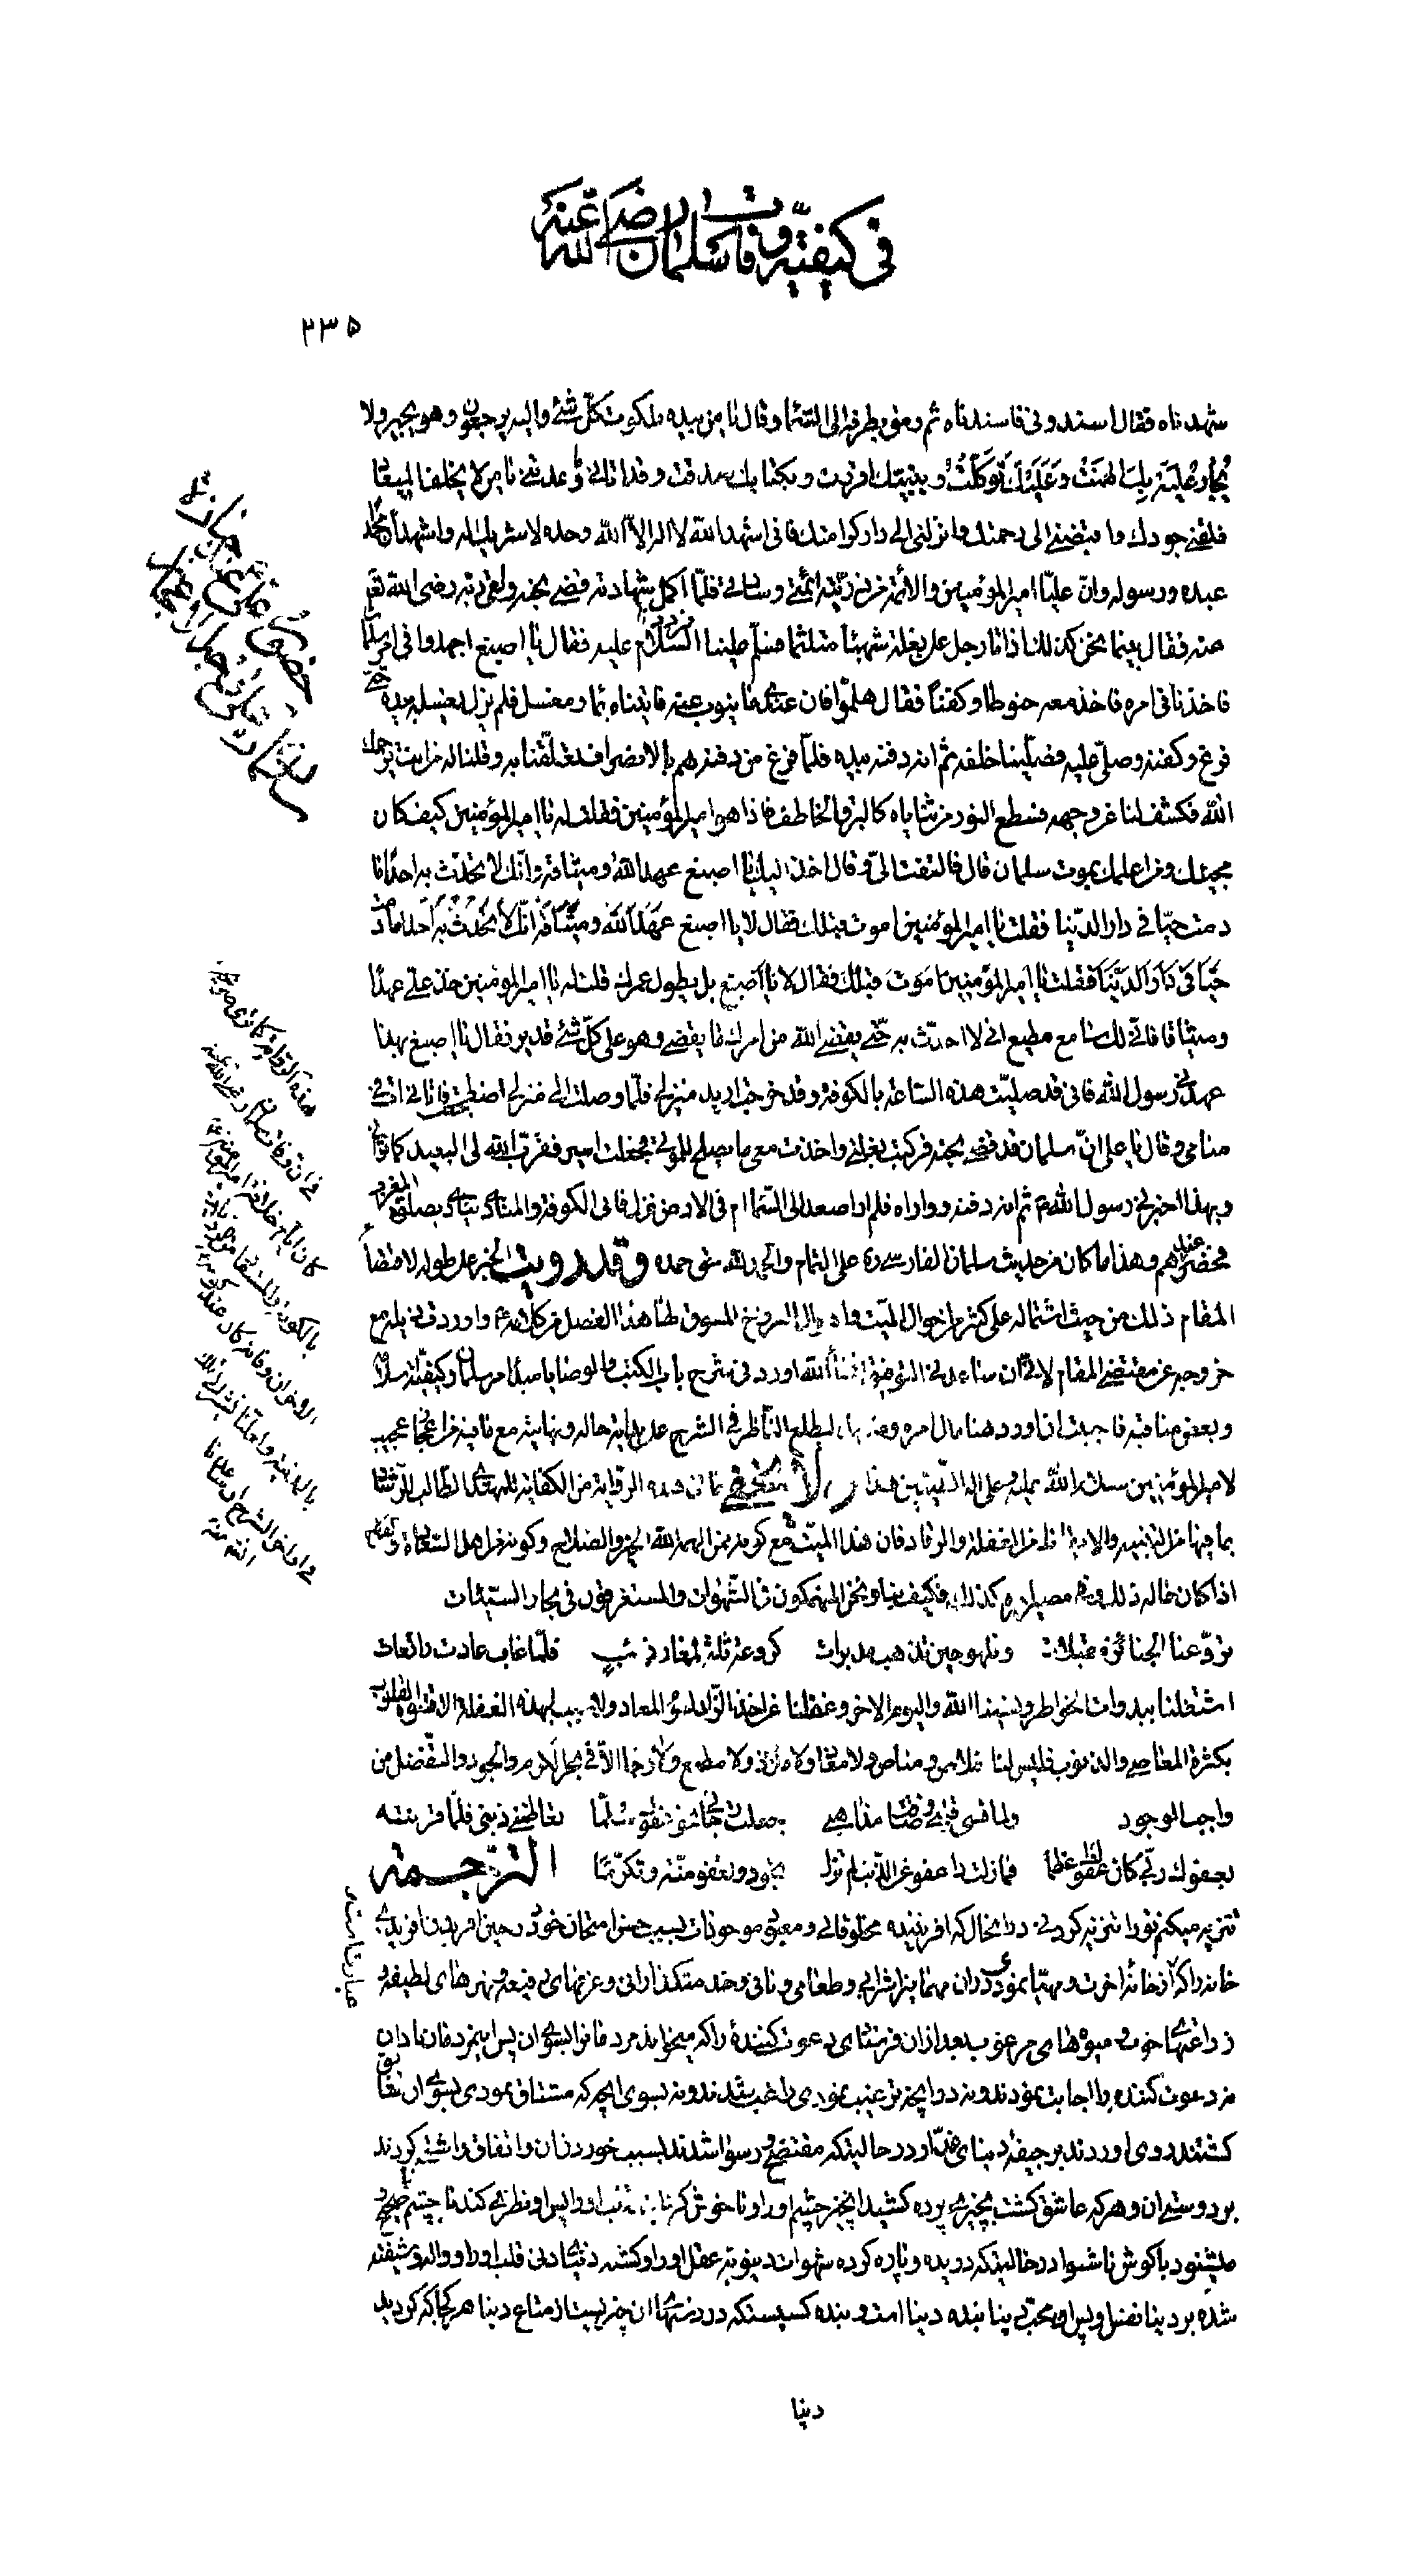 في كيفيّة وفات سلمان رضي الله عنه
۲۳۵
شهدناه فقال اسندوني فاسندناه ثم رمق بطرفه الى السّماء وقال يا من بيده ملكوت كلّ شئ واليه يرجعون وهو يجير ولا
يجار عليه بك امنت وعليك توكّلت وبنبيّك اقررت وبكتابك صدقت وقد اتاني ما وعدتني يا من لا يخلف الميعاد
فلقّني جودك واقبضني الى رحمتك وانزلني الى دار كرامتك فاني اشهد ان لا اله الاّ الله وحده لا شريك له واشهد انّ محمّدا
عبده ورسوله وانّ عليّا امير المؤمنين والائمة من ذرّيّته ائمّتي وساداتي فلمّا اكمل شهادته قضى نحبه ولقى ربّه رضي الله تعالى
عنه فقال بينما نحن كذلك اذ اتا رجل على بغلة شهباء متلثما فسلّم علينا فرددنا السّلام عليه فقال يا اصبغ اجهدوا في امر سلمان
فاخذنا في امره فاخذ معه حنوطا وكفنا فقال هلمّوا فان عندى ما ينوب عنه فاتيناه بماء ومغسل فلم يزل يغسله بيده حتّى
فرغ وكفنه وصلّى عليه فصلّينا خلفه ثم انه دفنه بيده فلمّا فرغ من دفنه همّ بالانصراف تعلّقنا به وقلنا له من انت يرحمك
الله فكشف لنا عن وجهه فسطع النور من ثناياه كالبرق الخاطف فاذا هو امير المؤمنين فقلت له يا امير المؤمنين كيف كان
مجيئك ومن اعلمك بموت سلمان قال فالتفت الىّ وقال اخذ عليك يا اصبغ عهد الله وميثاقه وانّك لا تحدّث به احدا ما
دمت حيّا في دار الدّنيا فقلت يا امير المؤمنين اموت قبلك فقال لا يا اصبغ عهد الله وميثاقه انّك لا تحدّث به احدا ما دمت
حيّا في دار الدّنيا فقلت يا امير المؤمنين اموت قبلك فقال لا يا اصبغ بل يطول عمرك قلت له يا امير المؤمنين خذ علىّ عهدا
وميثاقا فاني لك سامع مطيع اني لا احدّث به حتّى يقضى الله من امرك ما يقضى وهو على كلّ شئ قدير فقال يا اصبغ بهذا
عهدني رسول الله فاني قد صلّيت هذه السّاعة بالكوفة وقد خرجت اريد منزلي فلمّا وصلت الى منزلي اضطجعت فاتاني ات في
منامي وقال يا علي انّ سلمان قد قضى نحبه فركبت بغلتي واخذت معي ما يصلح للموتى فجعلت اسير فقرّب الله لي البعيد كما تراني
وبهذا اخبرني رسول الله ثم انه دفنه وواراه فلم ار اصعد الى السّماء ام في الارض نزل فاتى الكوفة والمنادى ينادى لصلوة المغرب
فحضر عندهم وهذا ما كان من حديث سلمان الفارسي ره على التمام والحمد لله حق حمده وقد رويت الخبر على طوله لاقتضاء
المقام ذلك من حيث اشتماله على كثير من احوال الميّت واهوال البرزخ المسوق لها هذا الفصل من كلامه ع واورد فيه يلزم
خروجه عن مقتضى المقام لانّي ان ساعدني التوفيق انشاء الله اورد في شرح باب الكتب والوصايا مبدأ امر سلمان وكيفيّة اسلامه
وبعض مناقبه فاحببت ان اورد هنا مال امره ليطلع النّاظر في الشرح على بداية حاله ونهايته مع ما فيه من اعجاز عجيب
لامير المؤمنين سلام الله عليه وعلى اله الطّيّبين هذا ولا يخفى ما في هذه الرّواية من الكفاية للهداية لطالب الرّشاد
بما فيها من التنبيه والايقاظ من الغفلة والرقاد فان هذا الميّت مع كونه ممن الهمه الله الخير والصّلاح وكونه من اهل السّعادة
اذا كان حاله ذلك ومصيره كذلك فكيف بنا ونحن المنهمكون في الشّهوات والمستغرقون في بحار السيّئات
تروّعنا الجنائز مقبلات ونلهو حين تذهب مدبرات كروعة ثلة لمغار ذئب فلمّا غاب عادت راتعات
اشتغلنا ببدوات الخواطر ونسينا الله واليوم الاخر وغفلنا عن اخذ الزّاد ليوم المعاد ولا سبب لهذه الغفلة الاّ قسوة القلوب
بكثرة المعاصى والذنوب فليس لنا خلاص ومناص ولا مفرّ ولا ملاذ ولا مطمع ولا رجاء الاّ في بحر الكرم والجود والتّفضّل من
واجب الوجود ولما قسى قلبي وضاقت مذاهبي جعلت رجائي نحو عفوك سلّما تعاظمني ذنبي فلمّا قرنته
بعفوك ربّي كان عفوك اعظما فما زلت ذا عفو عن الذّنب لم تزل تجود وتعفو منّة وتكرّما الترجمة
تنزيه ميكنم تورا تنزيه كردنى در انحال كه افريننده مخلوقاتى ومعبود موجودات بسبب حسن امتحان خود در حين افريدن افريدى
خانه را كه از خانه اخرت ومهيّا نمودى دران مهمانى شرابى وطعامى وزنانى وخدمتكذارانى وعزفهاى رفيعه ونهرهاى لطيفه و
زراعتهاى خوب وميوههاى مرغوب بعد ازان فرستادى دعوت كننده را كه ميخواند مردمانرا بسوى ان پس نه مردمان نادان
مر دعوت كننده را اجابت نمودند ونه در انچه ترغيب نمودى راغب شدند ونه بسوى انچه كه مشتاق نمودى بسوى ان شايق
گشتند روى اوردند بر جيفه دنياى غدّار در حالتيكه مفتضح ورسوا شدند بسبب خوردن ان واتفاق واشتى كردند
بر دوستى ان وهر كه عاشق گشت بچيزى پرده كشيد انچيز چشم او را وناخوش كرد قلب او را پس او نظر مى كند با چشم غير صحيح و
ميشنود با گوش ناشنوا در حالتيكه دريده وپاره كرده شهوات دنيويّه عقل او را وكشته دنياى دنى قلب او را وواله وشيفته
شده بر دنيا نفس او پس او محبّ دنيا بنده دنيا است وبنده كسيستكه در دستهاى ان چيزيست از متاع دنيا هر كجا كه گرديد
دنيا